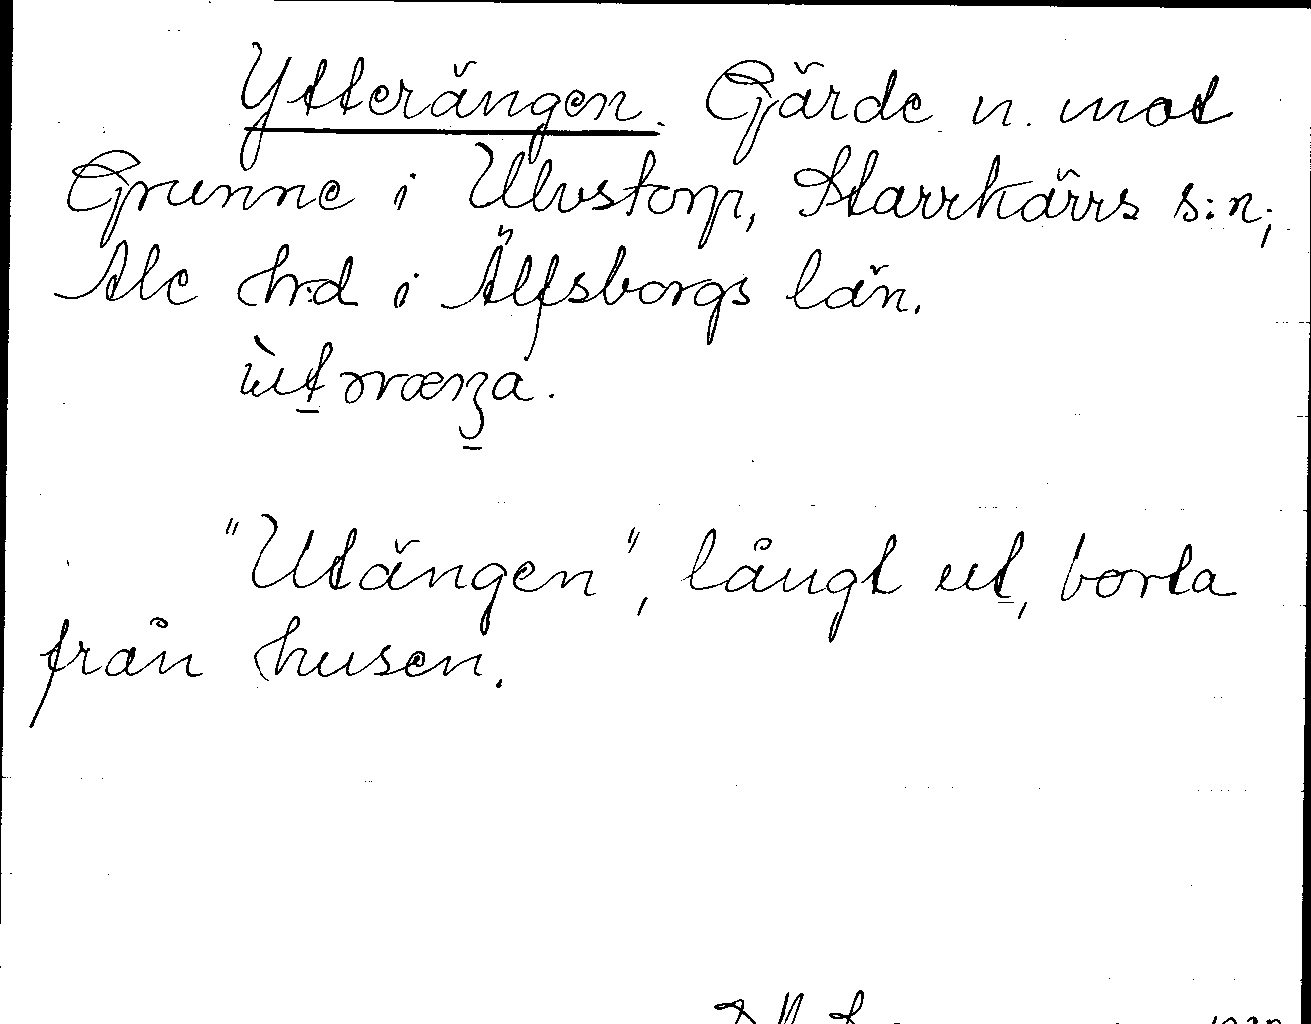 Ytterängen. Gärde n. mot
Grunne i Ulvstorp, Starrkärrs s:n,
Ale h:d i Älfsborgs län.
"Utängen", långt ut, borta
från husen.